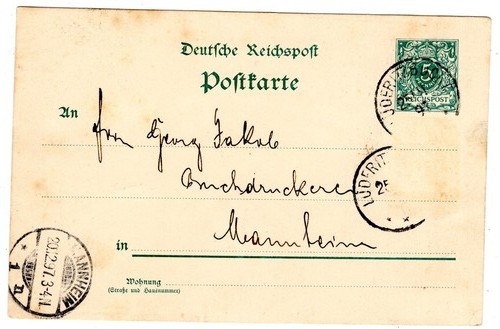 Deutsche Reichspost
Postkarte
5
REICHSPOST
LÜDERITZB
An Herrn Georg Jakob
LÜDERIT
25
Buchdruckerei
in Mannheim
MANNHEIM
20.12.97. 3-4N.
* 1 n
Wohnung
(Straße und Hausnummer)